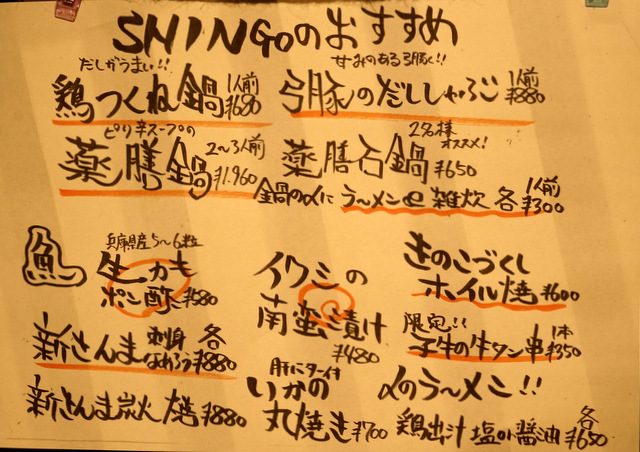 SHINGoのおすすめ
だしがうまい!!
鶏つくね鍋 1人前 ¥680
甘みのある弓豚!!
弓豚のだししゃぶ 1人前 ¥880
ピリ辛スープの
薬膳鍋 2〜3人前 ¥1,960
2名様 オススメ!
薬膳石鍋 ¥650
鍋の〆に ラ〜メン or 雑炊 各 1人前 ¥300
魚
兵庫県産 5〜6粒
生カキ
ポン酢 ¥680
新さんま 刺身 なめろう 各 ¥880
新さんま炭火焼 ¥880
イワシの
南蛮漬け
¥480
肝バター付
いかの
丸焼き ¥700
きのこづくし
ホイル焼 ¥600
限定!!
子牛の牛タン串 1本 ¥350
〆のラ〜メン!!
鶏出汁 塩or醤油 各 ¥650